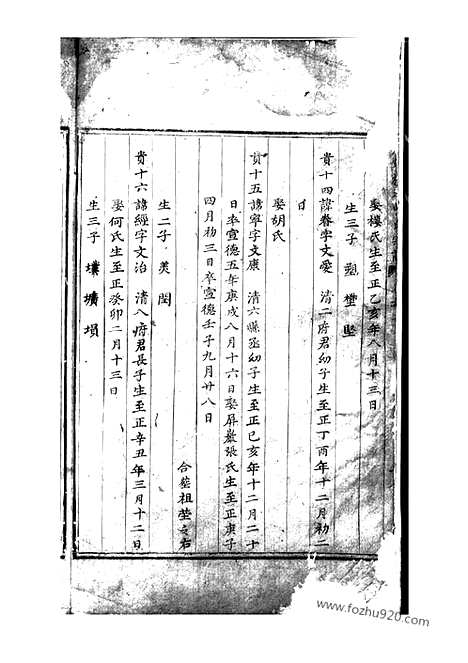 娶樓氏生至正乙亥年八月十三日
生三子 塑 壄 堅
貴十四諱眷字文愛 清二府君幼子生至正丁酉年十二月初二
日
娶胡氏
貴十五諱寧字文康 清六縣丞幼子生至正己亥年十二月二十
日卒宣德五年庚戌八月十六日娶屏巖張氏生至正庚子
四月初三日卒宣德壬子九月廿八日
合塟祖塋之右
生二子 美 閏
貴十六諱經字文治 清八府君長子生至正辛丑年三月十二日
娶何氏生至正癸卯二月十三日
生三子 墣 壙 塤
www.fozhu920.com